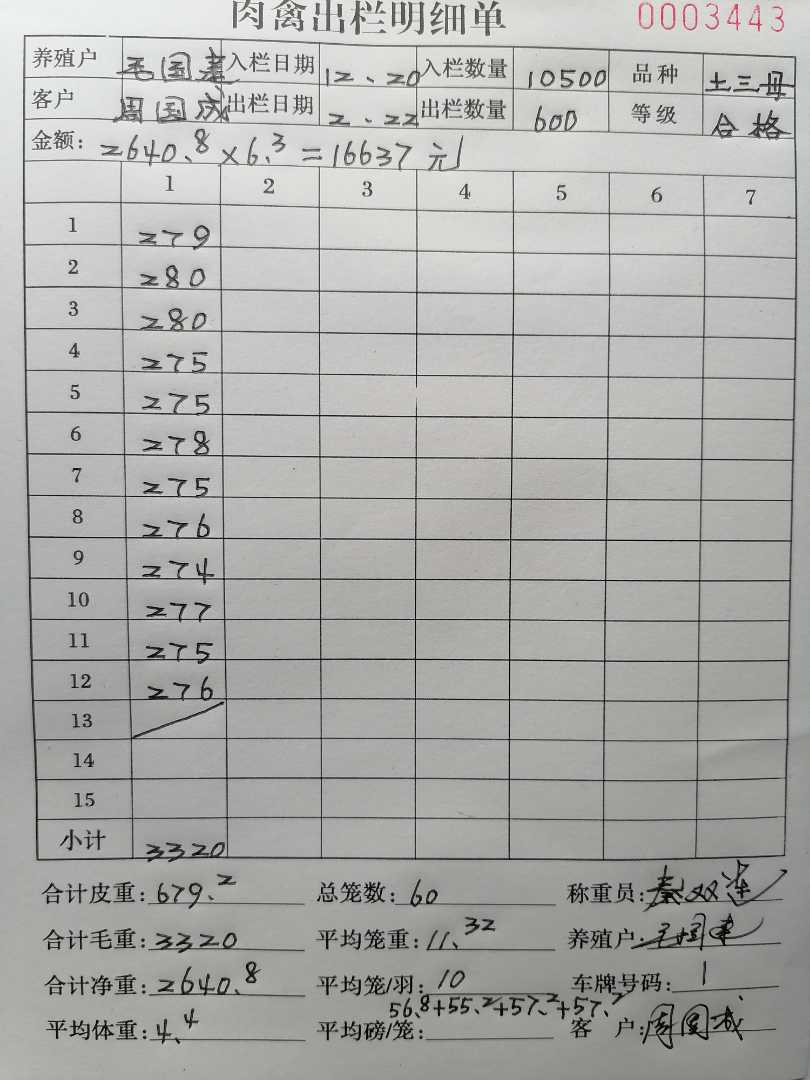 肉禽出栏明细单 0003443
养殖户 毛国建 入栏日期 12.20 入栏数量 10500 品种 土三母
客户 周国成 出栏日期 2.22 出栏数量 600 等级 合格
金额: 2640.8×6.3=16637元
1 2 3 4 5 6 7
1 279
2 280
3 280
4 275
5 275
6 278
7 275
8 276
9 274
10 277
11 275
12 276
13
14
15
小计 3320
合计皮重: 679.2 总笼数: 60 称重员: 秦双连
合计毛重: 3320 平均笼重: 11.32 养殖户: 毛国建
合计净重: 2640.8 平均笼/羽: 10 车牌号码: 1
56.8+55.2+57.2+57.2
平均体重: 4.4 平均磅/笼: 客户: 周国成